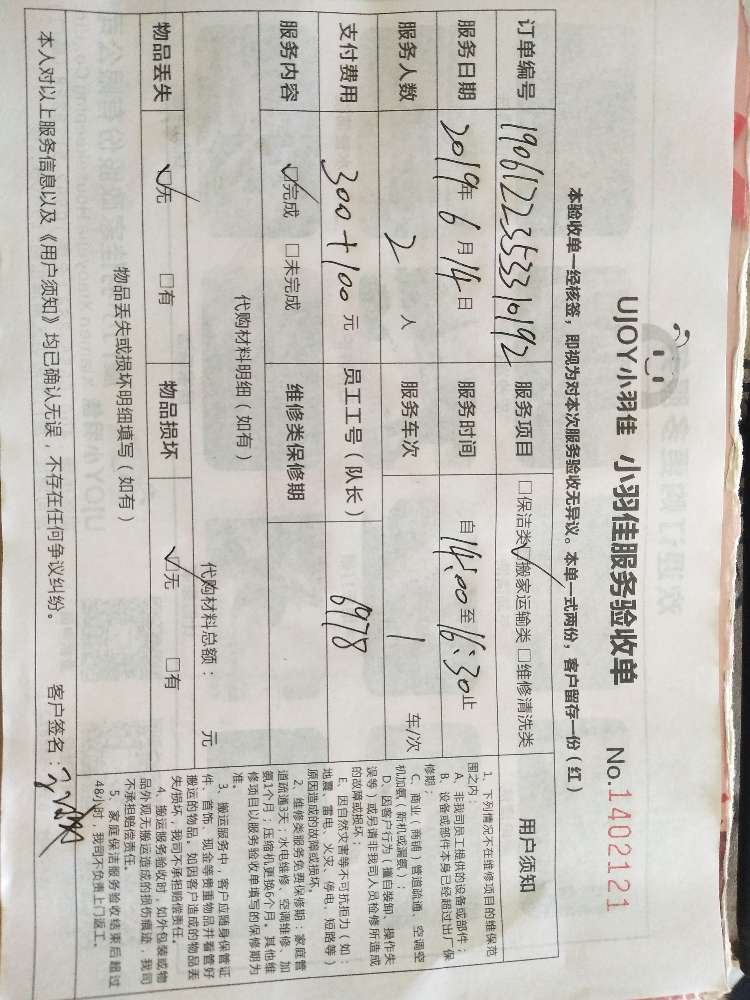 UJOY小羽佳 小羽佳服务验收单 No.1402121
本验收单一经核签,即视为对本次服务验收无异议。本单一式两份,客户留存一份(红)
订单编号 190612235331092 服务项目 □保洁类☑搬家运输类□维修清洗类
服务日期 2019年6月14日 服务时间 自14:00至16:30止
服务人数 2人 服务车次 1 车/次
支付费用 300+100元 员工工号(队长) 6978
服务内容 ☑完成 □未完成 维修类保修期
代购材料明细(如有)
代购材料总额: 元
物品丢失 ☑无 □有 物品损坏 ☑无 □有
物品丢失或损坏明细填写(如有)
本人对以上服务信息以及《用户须知》均已确认无误,不存在任何争议纠纷。 客户签名:
用户须知
1、下列情况不在维修项目的维保范
围之内:
A、非我司员工提供的设备或部件;
B、设备或部件本身已经超过出厂保
修期;
C、商业(商铺)管道疏通、空调空
机加氨(新机或漏氨);
D、因客户行为(擅自装卸、操作失
误等)或另请非我司人员检修所造成
的故障或损坏;
E、因自然灾害等不可抗拒力(如:
地震、雷电、火灾、停电、短路等)
原因造成的故障或损坏。
2、维修类服务免费保修期:家庭管
道疏通3天;水电维修、空调维修、加
氨1个月;压缩机更换6个月。其他维
修项目以服务验收单填写的保修期为
准。
3、搬运服务中,客户应随身保管证
件、首饰、现金等贵重物品并看管好
搬运的物品。如因客户造成的物品丢
失/损坏,我司不承担赔偿责任。
4、搬运服务验收时,如外包装或物
品外观无搬运造成的损伤痕迹,我司
不承担赔偿责任。
5、家庭保洁服务验收结束后超过
48小时,我司不负责上门返工。